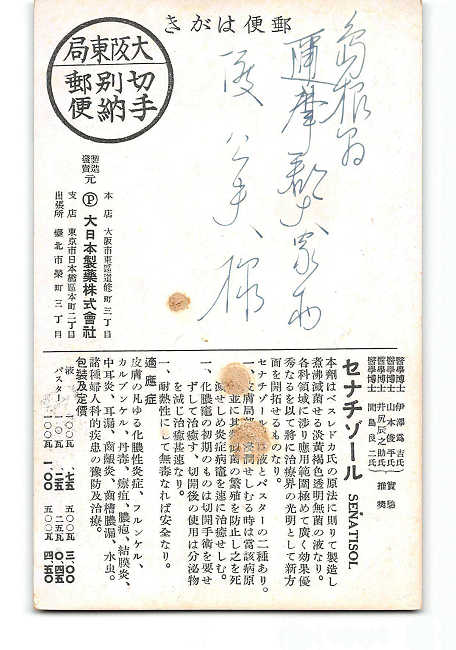 郵便はがき
大阪東局
切手
別納
郵便
島根
邇摩郡大家村
様
製造
發賣元
大日本製藥株式會社
本店 大阪市東區道修町三丁目
支店 東京市日本橋區本町二丁目
出張所 臺北市榮町三丁目
醫學博士 伊澤爲吉氏
醫學博士 山本俊平氏 實驗
醫學博士 井尻辰之助氏 推奬
醫學博士 間島良二氏
セナチゾール SENATISOL
本劑はベスレドカ氏の原法に則りて製造し
煮沸滅菌せる淡黄褐色透明無菌の液なり。
各科領域に渉り應用範圍極めて廣く効果優
秀なるを以て將に治療界の光明として新方
面を開拓せるものなり。
セナチゾールには液とパスターの二種あり。
一、皮膚局部に浸潤せしむる時は當該病原
菌並に其他の菌の繁殖を防止し之を死
滅せしめ炎症病竈を速に治癒せしむ。
一、化膿竈の初期のものは切開手術を要せ
ずして治癒す、切開後の使用は分泌物
を減じ治癒甚速なり。
一、耐熱性にして無毒なれば安全なり。
適應症
皮膚の凡ゆる化膿性炎症、フルンケル、
カルブンケル、丹毒、瘭疽、膿疱、結膜炎、
中耳炎、耳漏、齒齦炎、齒槽膿漏、水虫。
諸種婦人科的疾患の豫防及治療。
包裝及定價
液 一〇〇瓦 一・七五 五〇〇瓦 三・〇〇
パスター 二五瓦 〇・四五
一〇〇瓦 一・〇〇 五〇〇瓦 四・五〇